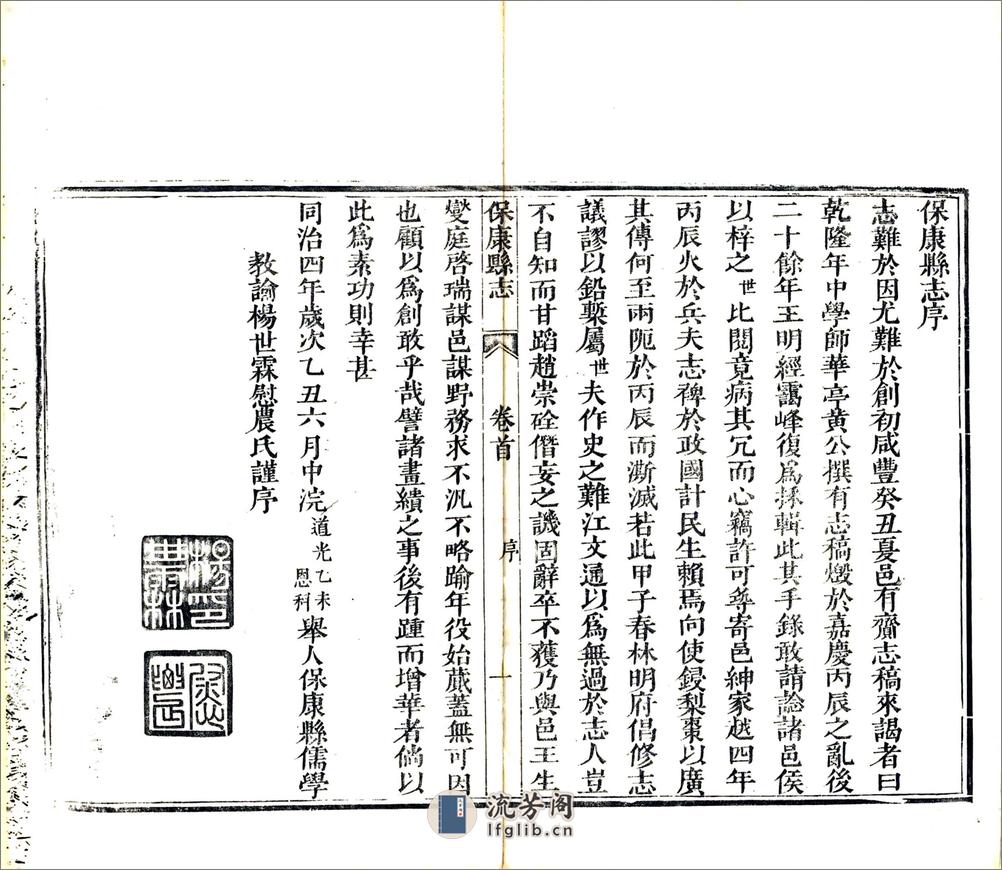 保康縣志序
志難於因尤難於創初咸豐癸丑夏邑有齎志稿來謁者曰
乾隆年中學師華亭黃公撰有志稿燬於嘉慶丙辰之亂後
二十餘年王明經靄峰復爲採輯此其手錄敢請諗諸邑侯
以梓之世比閱竟病其冗而心竊許可等寄邑紳家越四年
丙辰火於兵夫志裨於政國計民生賴焉向使鋟梨棗以廣
其傳何至兩阨於丙辰而澌滅若此甲子春林明府倡修志
議謬以鉛槧屬世夫作史之難江文通以爲無過於志人豈
不自知而甘蹈趙崇硂僭妄之譏固辭卒不獲乃與邑王生
保康縣志 卷首 序 一
燮庭啓瑞謀邑謀野務求不汎不略踰年役始蕆蓋無可因
也顧以爲創敢乎哉譬諸畫繢之事後有踵而增華者倘以
此爲素功則幸甚
同治四年歲次乙丑六月中浣道光乙未恩科舉人保康縣儒學
教諭楊世霖慰農氏謹序
流芳阁
lfglib.cn